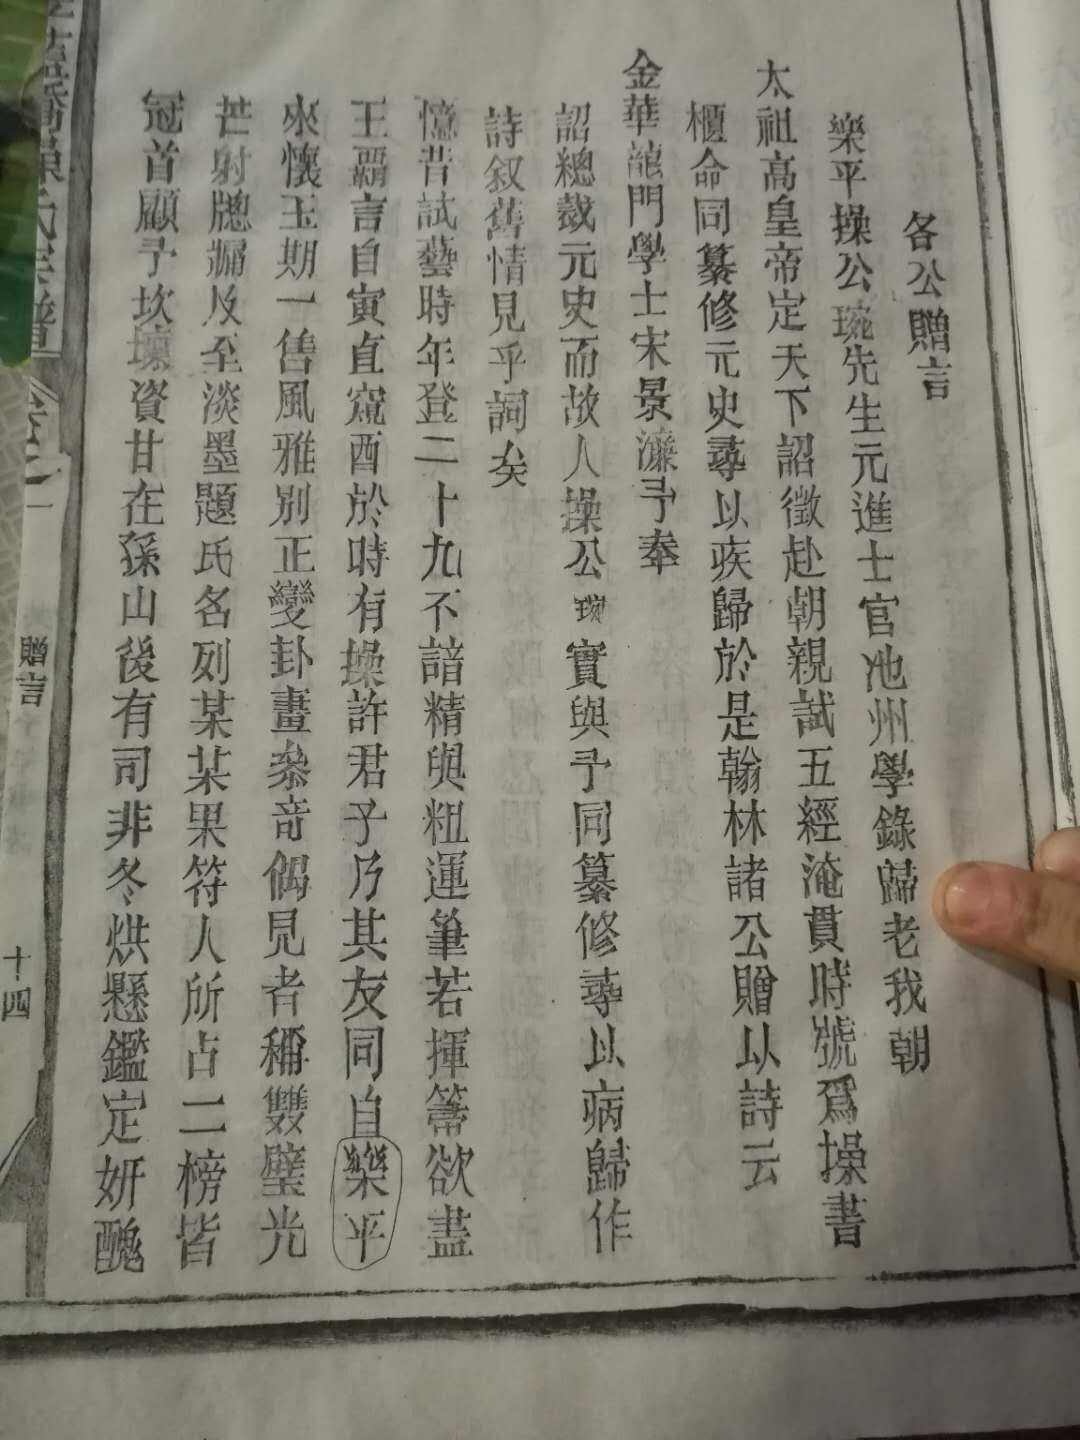 各公贈言
樂平操公琬先生元進士官池州學錄歸老我朝
太祖高皇帝定天下詔徵赴朝親試五經淹貫時號爲操書
櫃命同纂修元史尋以疾歸於是翰林諸公贈以詩云
金華龍門學士宋景濂予奉
詔總裁元史而故人操公琬實與予同纂修尋以病歸作
詩叙舊情見乎詞矣
憶昔試藝時年登二十九不諳精與粗運筆若揮箒欲盡
王覇言自寅直窺酉於時有操許君子乃其友同自樂平
來懷玉期一售風雅別正變卦畫叅竒偶見者稱雙璧光
芒射牎牖及至淡墨題氏名列某某果符人所占二榜皆
冠首顧予坎壈資甘在孫山後有司非冬烘懸鑑定妍醜
氏宗譜
卷之一
贈言
十四